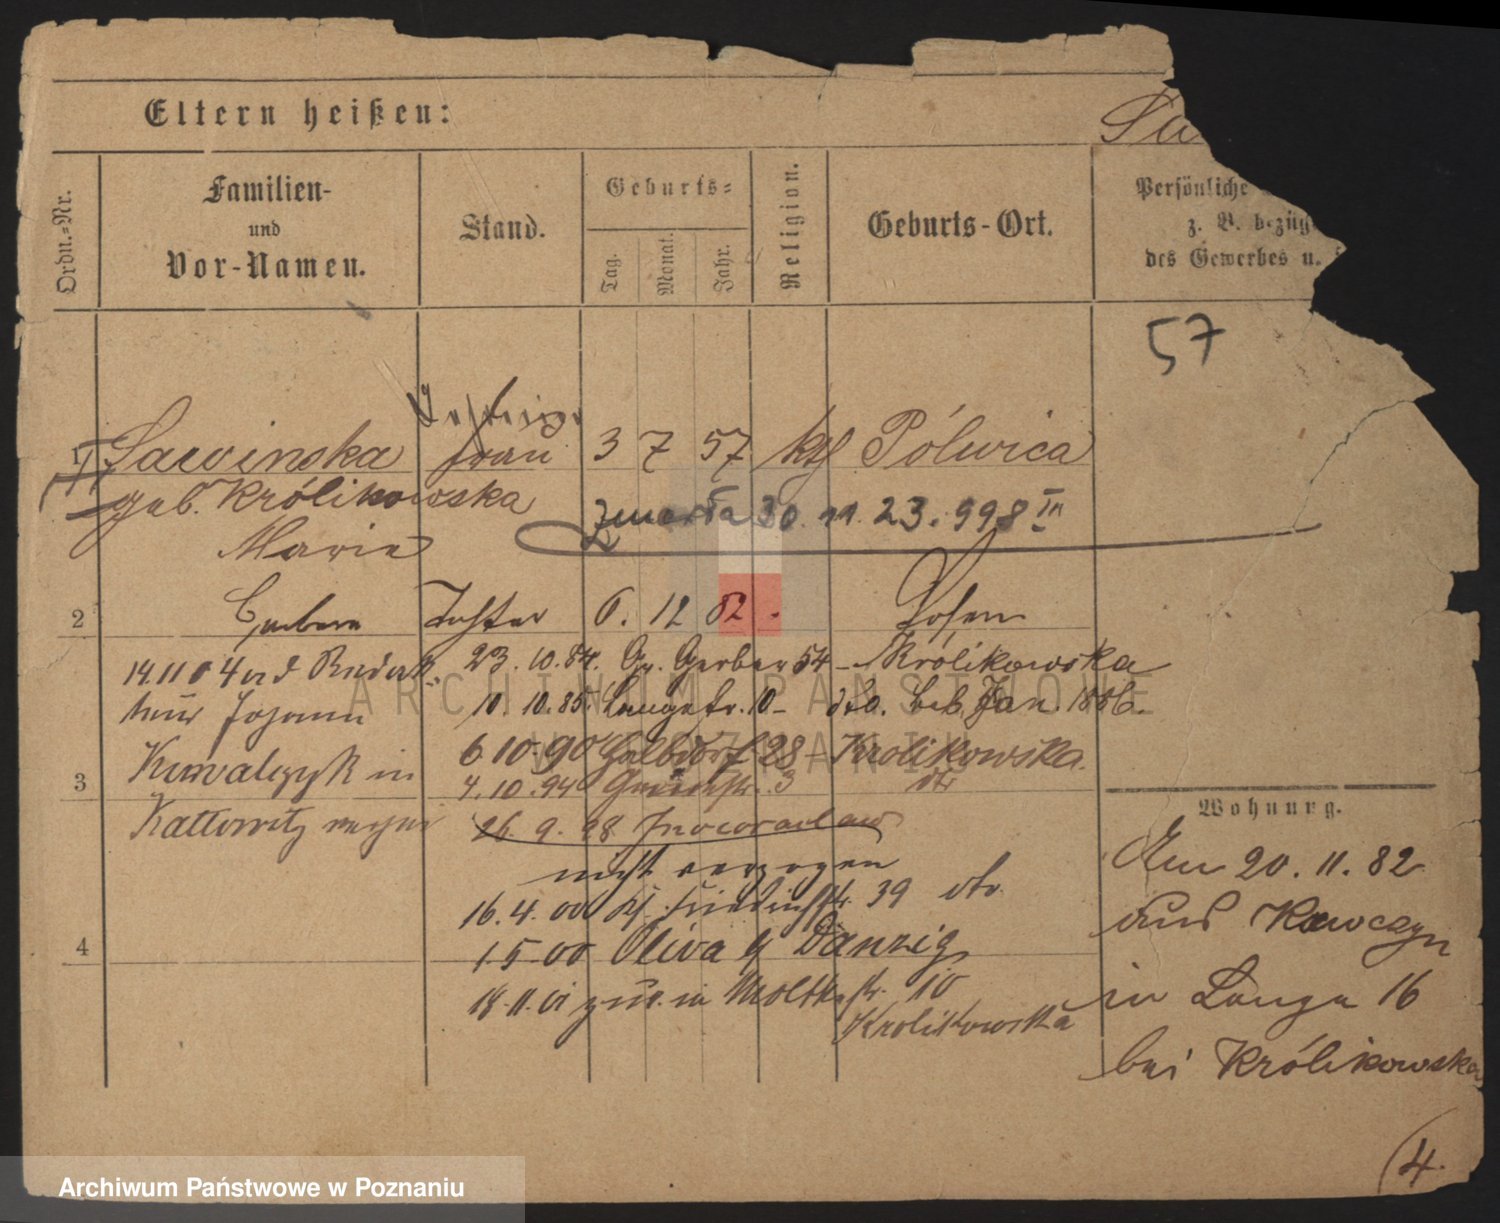 Eltern heißen:
Ordn.-Nr.
Familien-
und
Vor-Namen.
Stand.
Geburts-
Tag.
Monat.
Jahr.
Religion.
Geburts-Ort.
Persönliche
z. B. bezüg
des Gewerbes u.
57
1 Sawinska Frau 3 7 57 kth Pólwica
geb. Królikowska zmarła 30. 11. 23. 998 III
Marie
2 Barbara Tochter 6. 12 82 . Posen
14.11 04 23. 10. 84. Gr. Gerber 54 - Królikowska
Johann 10. 10. 85. Langestr. 10 - dto. Jan. 1886.
Kuwalczyk in 6 10. 90 Halbdorf 28 - Krolikowska.
3 4. 10. 94 3
Kattowitz 26. 9. 98 Inowrazlaw
nicht verzogen
16. 4. 00 39 dto
4 1. 5. 00 Oliva b/ Danzig
18. 11. 01 zur. in Moltkestr. 10
Krolikowska
Wohnung.
Am 20. 11. 82
aus Kawczyn
in Lange 16
bei Królikowska
(4.
ARCHIWUM PAŃSTWOWE
W POZNANIU
Archiwum Państwowe w Poznaniu